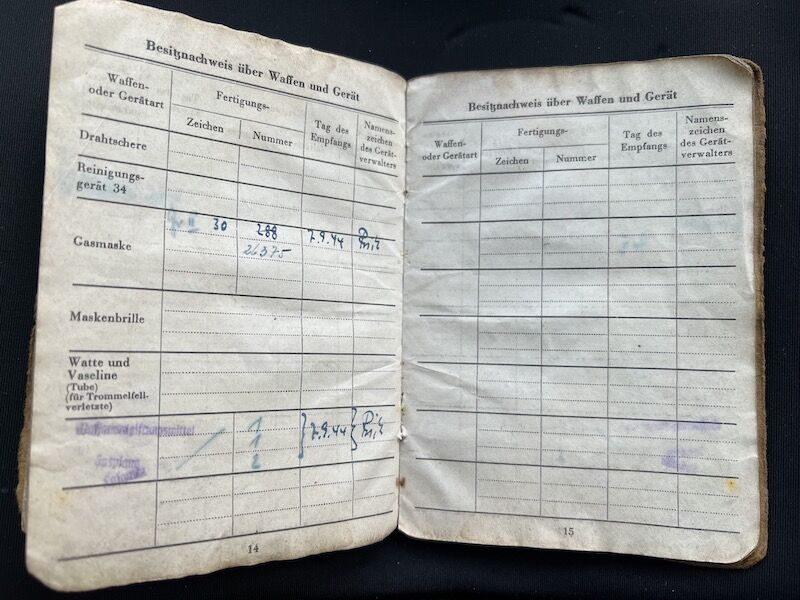 Besitznachweis über Waffen und Gerät
Waffen-
oder Gerätart
Fertigungs-
Zeichen
Nummer
Tag des
Empfangs
Namens-
zeichen
des Gerät-
verwalters
Drahtschere
Reinigungs-
gerät 34
Gasmaske
30
288
7.9.44
26375
Maskenbrille
Watte und
Vaseline
(Tube)
(für Trommelfell-
verletzte)
1
1
2
7.9.44
14
Besitznachweis über Waffen und Gerät
Waffen-
oder Gerätart
Fertigungs-
Zeichen
Nummer
Tag des
Empfangs
Namens-
zeichen
des Gerät-
verwalters
15